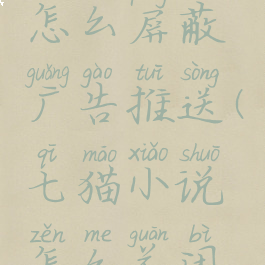 怎么屏蔽
guǎng gào tuī sòng
广告推送(
qī māo xiǎo shuō
七猫小说
zěn me guān bì